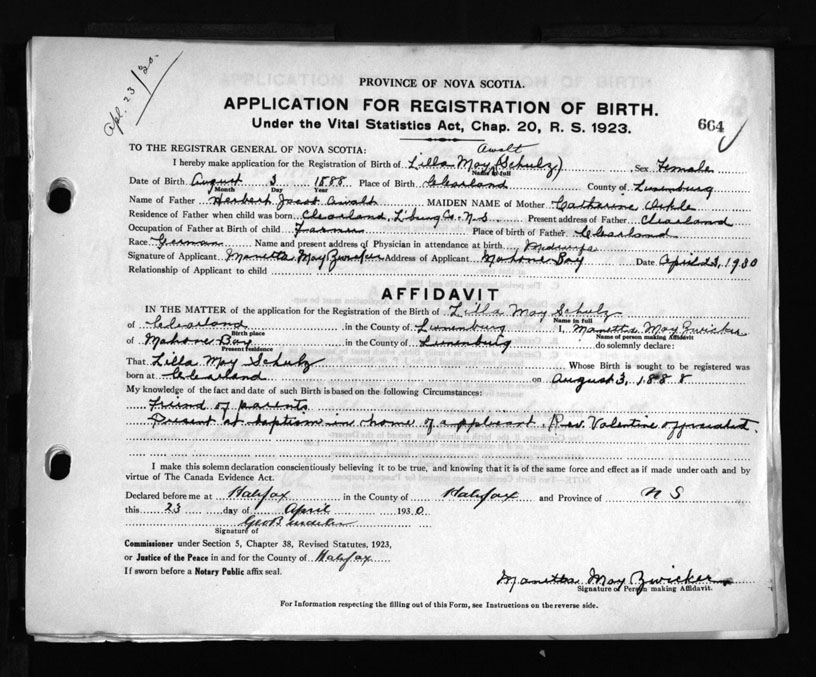 Apl. 23/30.
PROVINCE OF NOVA SCOTIA.
APPLICATION FOR REGISTRATION OF BIRTH.
664
Under the Vital Statistics Act, Chap. 20, R. S. 1923.
TO THE REGISTRAR GENERAL OF NOVA SCOTIA: Awalt
I hereby make application for the Registration of Birth of Lilla May (Schulz) Sex Female
Name in full
Date of Birth August 3 1888 Place of Birth Clearland County of Lunenburg
Month Day Year
Name of Father Herbert Awalt MAIDEN NAME of Mother Catharine
Residence of Father when child was born Clearland, L'burg Co. N.S. Present address of Father Clearland
Occupation of Father at Birth of child Farmer Place of birth of Father Clearland
Race German Name and present address of Physician in attendance at birth Midwife
Signature of Applicant Manetta May Zwicker Address of Applicant Mahone Bay Date April 23, 1930
Relationship of Applicant to child
AFFIDAVIT
IN THE MATTER of the application for the Registration of Birth of Lilla May Schulz
Name in full
of Clearland in the County of Lunenburg I, Manetta May Zwicker
Birth place Name of person making Affidavit
of Mahone Bay in the County of Lunenburg do solemnly declare:
Present residence
That Lilla May Schulz Whose Birth is sought to be registered was
born at Clearland on August 3, 1888
My knowledge of the fact and date of such Birth is based on the following Circumstances:
Friend of parents
Present at baptism in home of applicant. Rev. Valentine officiated.
I make this solemn declaration conscientiously believing it to be true, and knowing that it is of the same force and effect as if made under oath and by
virtue of The Canada Evidence Act.
Declared before me at Halifax in the County of Halifax and Province of N S
this 23 day of April 1930
Geo
Signature of
Commissioner under Section 5, Chapter 38, Revised Statutes, 1923,
or Justice of the Peace in and for the County of Halifax
If sworn before a Notary Public affix seal.
Manetta May Zwicker
Signature of Person making Affidavit.
For Information respecting the filling out of this Form, see Instructions on the reverse side.